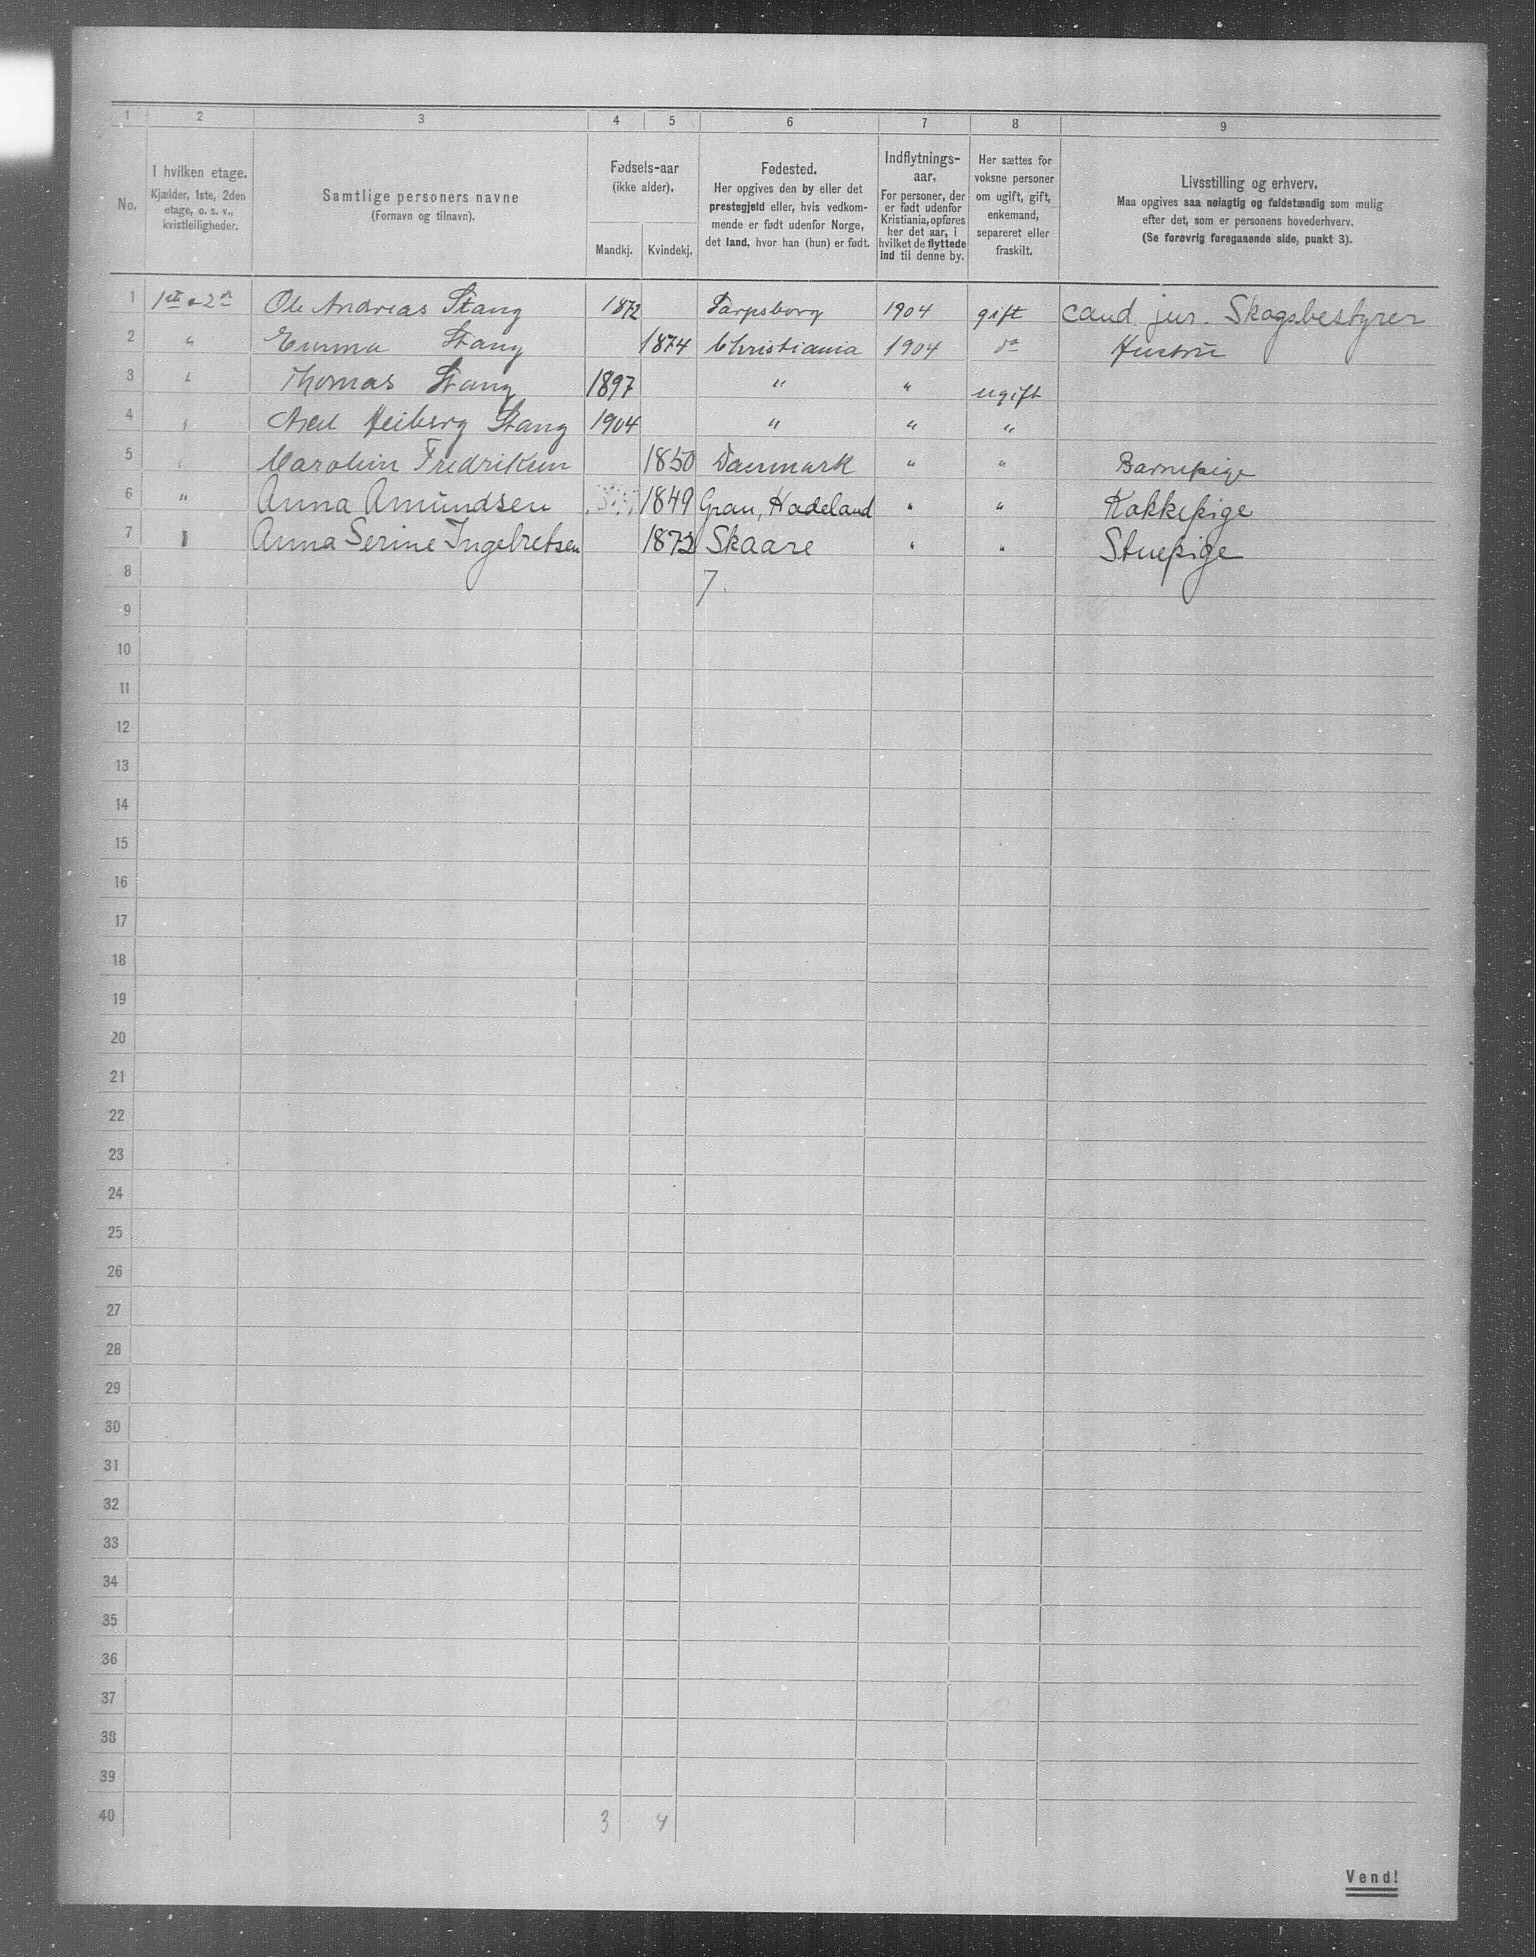 1 2 3 4 5 6 7 8 9
No.
I hvilken etage.
Kjælder, 1ste, 2den
etage, o. s. v.,
kvistleiligheder.
Samtlige personers navne
(Fornavn og tilnavn).
Fødsels-aar
(ikke alder).
Mandkj. Kvindekj.
Fødested.
Her opgives den by eller det
prestegjeld eller, hvis vedkom-
mende er født udenfor Norge,
det land, hvor han (hun) er født.
Indflytnings-
aar.
For personer, der
er født udenfor
Kristiania, opføres
her det aar, i
hvilket de flyttede
ind til denne by.
Her sættes for
voksne personer
om ugift, gift,
enkemand,
separeret eller
fraskilt.
Livsstilling og erhverv.
Maa opgives saa nøiagtig og fuldstændig som mulig
efter det, som er personens hovederhverv.
(Se forøvrig foregaaende side, punkt 3).
1 1ste & 2den Ole Andreas Stang 1872 Sarpsborg 1904 gift cand. jur. Skogsbestyrer
2 " Emma Stang 1874 Christiania 1904 do Hustru
3 " Thomas Stang 1897 " " ugift
4 " Axel Heiberg Stang 1904 " " "
5 " Carolin Fredriksen 1850 Danmark " " Barnepige
6 " Anna Amundsen 1849 Gran, Hadeland " " Kokkepige
7 " Anna Serine Ingebretsen 1872 Skaare " " Stuepige
8 7.
9
10
11
12
13
14
15
16
17
18
19
20
21
22
23
24
25
26
27
28
29
30
31
32
33
34
35
36
37
38
39
40 3 4
Vend!